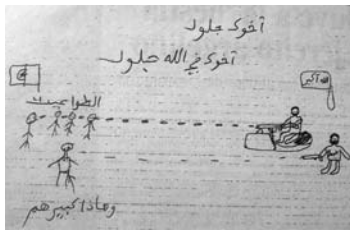 آخوك جلول
آخوك في الله جلول
أكبر
الطواغيت
وهاذا كبيرهم